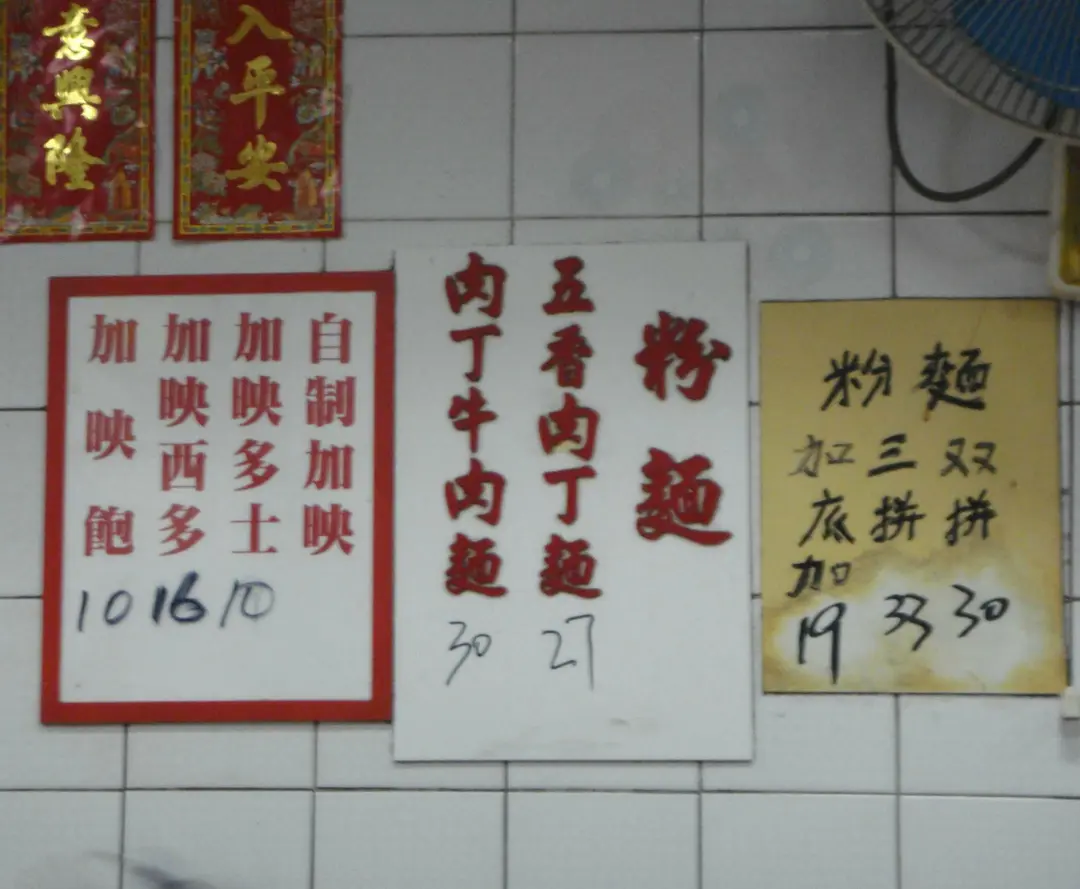 意興隆
入平安
自制加映
加映多士
10
加映西多
16
加映飽
10
粉麵
五香肉丁麵
27
肉丁牛肉麵
30
粉麵
双拼
30
三拼
33
加底加
19